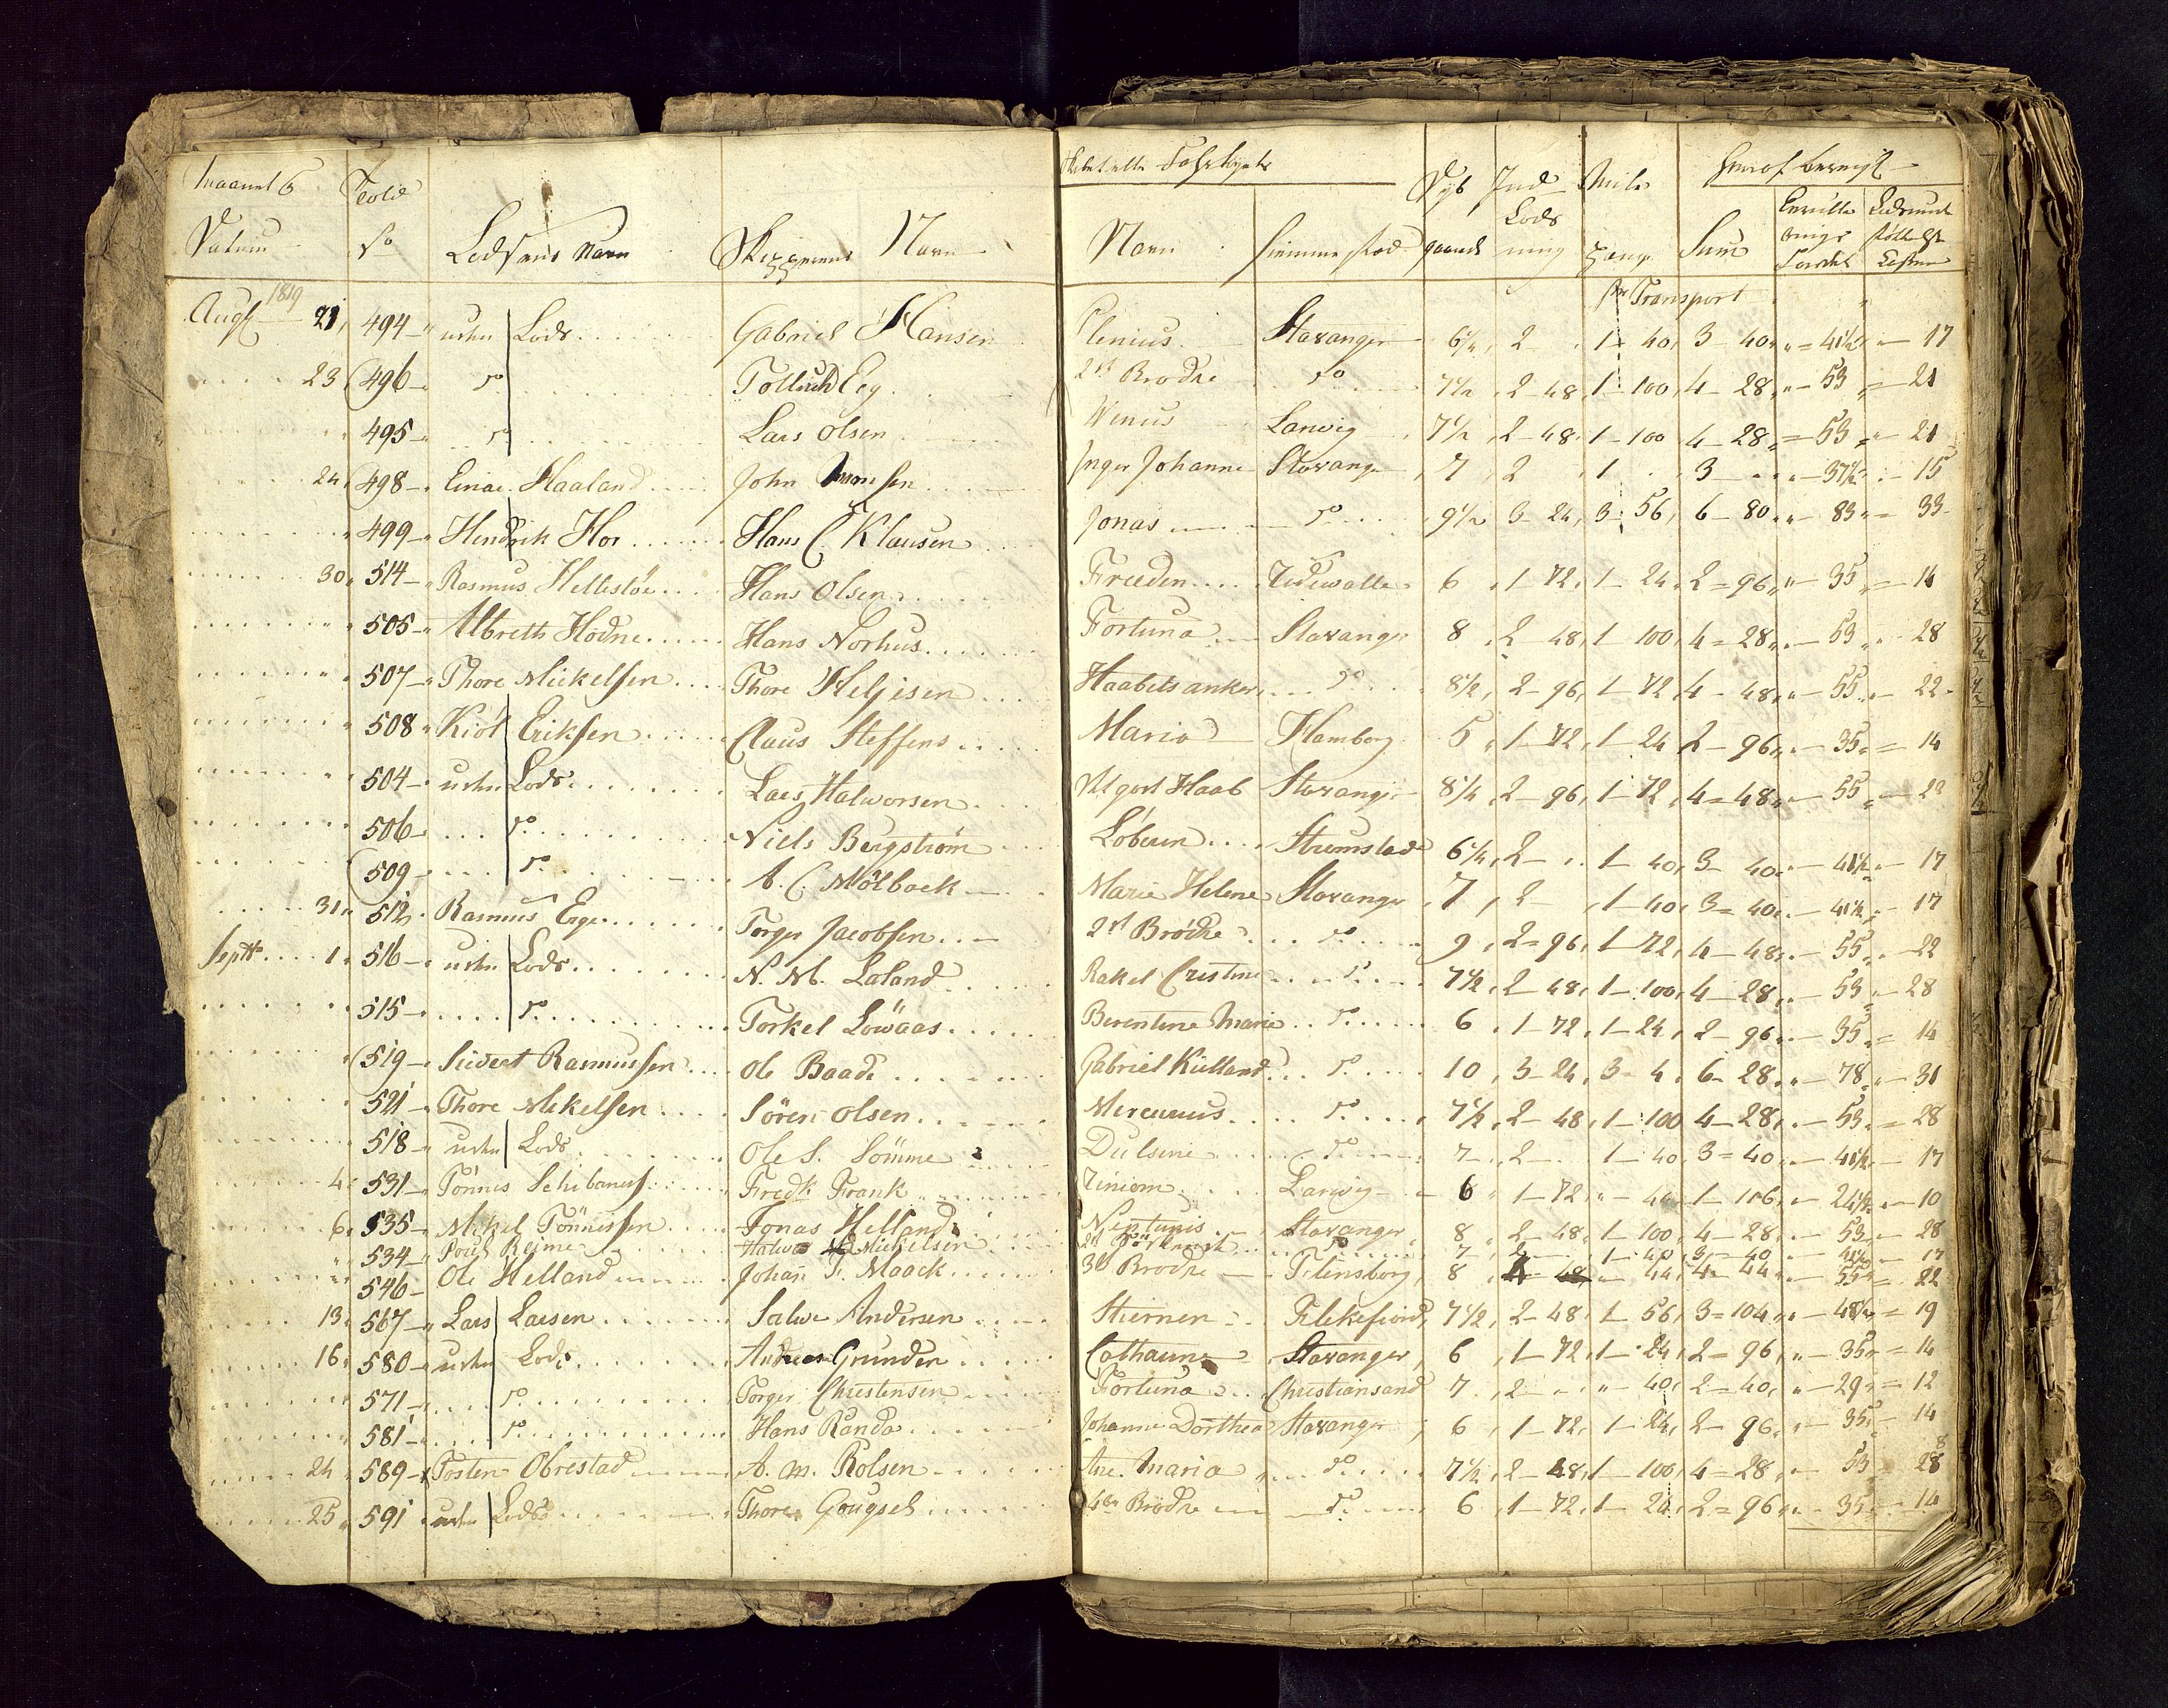 Maanet &
Datum
Seddel
No
Lodsens Navn
Skipperens Navn
Fahrtøyets
Navn
Hiemmestæd
Dyb
gaaende
Ind
Lods
ning
Mile
penge
Heraf beregnet
Sum
Transport
Augst 1819 21, 494 - usen Lods Gabriel Hansen Plenius Stavanger 6 1/4 2 1 - 40 3 - 40 " - 41 1/2 " - 17
23 496 - do Tollich Eeg 2de Brødre do 7 1/2 2 - 48 1 - 100 4 - 28 " - 53 " - 21
495 - do Lars Olsen Wenus Larwig 7 1/2 2 - 48 1 - 100 4 - 28 " - 53 " - 21
24 498 - Einar Haaland John Inger Johanne Stavanger 7 2 1 3 " - 37 1/2 " - 15
499 - Hendrik Hor Hans C. Klausen Jonas do 9 1/2 3 - 24 3 - 56 6 - 80 " - 83 " - 33
30 514 - Rasmus Hellestøe Hans Olsen Freeden Udewalle 6 1 - 72 1 - 24 2 - 96 " - 35 " - 14
505 - Albreth Hodne Hans Norhus Fortuna Stavanger 8 2 48 1 - 100 4 - 28 " - 53 " - 28
507 - Thore Mickelsen Thore Heljesen Haabets anker do 8 1/2 2 - 96 1 - 72 4 - 48 " - 55 " - 22
508 - Kiøl Eriksen Claus Steffens Maria Hamborg 5 1 - 72 1 - 24 2 - 96 " - 35 " - 14
504 - usen Lods Lars Halworsen Et godt Haab Stavanger 8 1/4 2 - 96 1 - 72 4 - 48 " - 55 " - 22
506 - do Niels Bergstrøm Løberen Strømstad 6 1/4 2 - 1 - 40 3 - 40 " - 41 1/2 " - 17
509 - do A. C. Mølbach Marie Helene Stavanger 7 2 - 1 - 40 3 - 40 " - 41 1/2 " - 17
31 512 - Rasmus Ege Torger Jacobsen 2de Brødre do 9 2 - 96 1 - 72 4 - 48 " - 55 " - 22
Septbr 1 516 - usen Lods N. M. Loland Rakel Cristine do 7 1/2 2 - 48 1 - 100 4 - 28 " - 53 " - 28
515 - do Torkel Lowaas Berentine Marie do 6 1 - 72 1 - 24 2 - 96 " - 35 " - 14
519 - Sivert Rasmussen Ole Baade Gabriel Kielland do 10 3 - 24 3 - 4 6 - 28 " - 78 " - 31
521 - Thore Mekelsen Søren Olsen Mercurius do 7 1/2 2 - 48 1 - 100 4 - 28 " - 53 " - 28
518 - usen Lods Ole S. Sømme Dulsine do 7 2 1 - 40 3 - 40 " - 41 1/2 " - 17
4 531 - Tønnes Schibenes Fredk Frank Larwig 6 1 - 72 " - 44 1 - 116 " - 24 1/2 " - 10
6 535 - Mikel Tønnessen Jonas Helland Neptunis Stavanger 8 2 - 48 1 - 100 4 - 28 " - 53 " - 28
534 - Poul Reime Halwor Mickelsen do 7 2 1 - 40 3 - 40 " - 41 1/2 " - 17
546 - Ole Helland Johan F. Maack 3de Brødre Flensborg 8 " 44 4 - 44 " - 55 " - 22
13 567 - Lars Larsen Salwe Andersen Stiernen Flekefiord 7 1/2 2 - 48 1 - 56 3 - 104 " - 48 1/2 " - 19
16 580 - usen Lods Andreas Grunden Cathaune Stavanger 6 1 - 72 1 - 24 2 - 96 " - 35 " - 14
571 - do Torger Christensen Fortuna Christiansand 7 2 - " - 40 2 - 40 " - 29 " - 12
581 - do Hans Randa Johanne Dorthea Stavanger 6 1 - 72 1 - 24 2 - 96 " - 35 " - 14
24 589 - Tosten Obrestad A. M. Rolsen Ane Maria do 7 1/2 2 - 48 1 - 100 4 - 28 " - 53 " 28
25 591 usen Lods Thore Gougsel 4de Brødre do 6 1 - 72 1 - 24 2 - 96 " - 35 " - 14